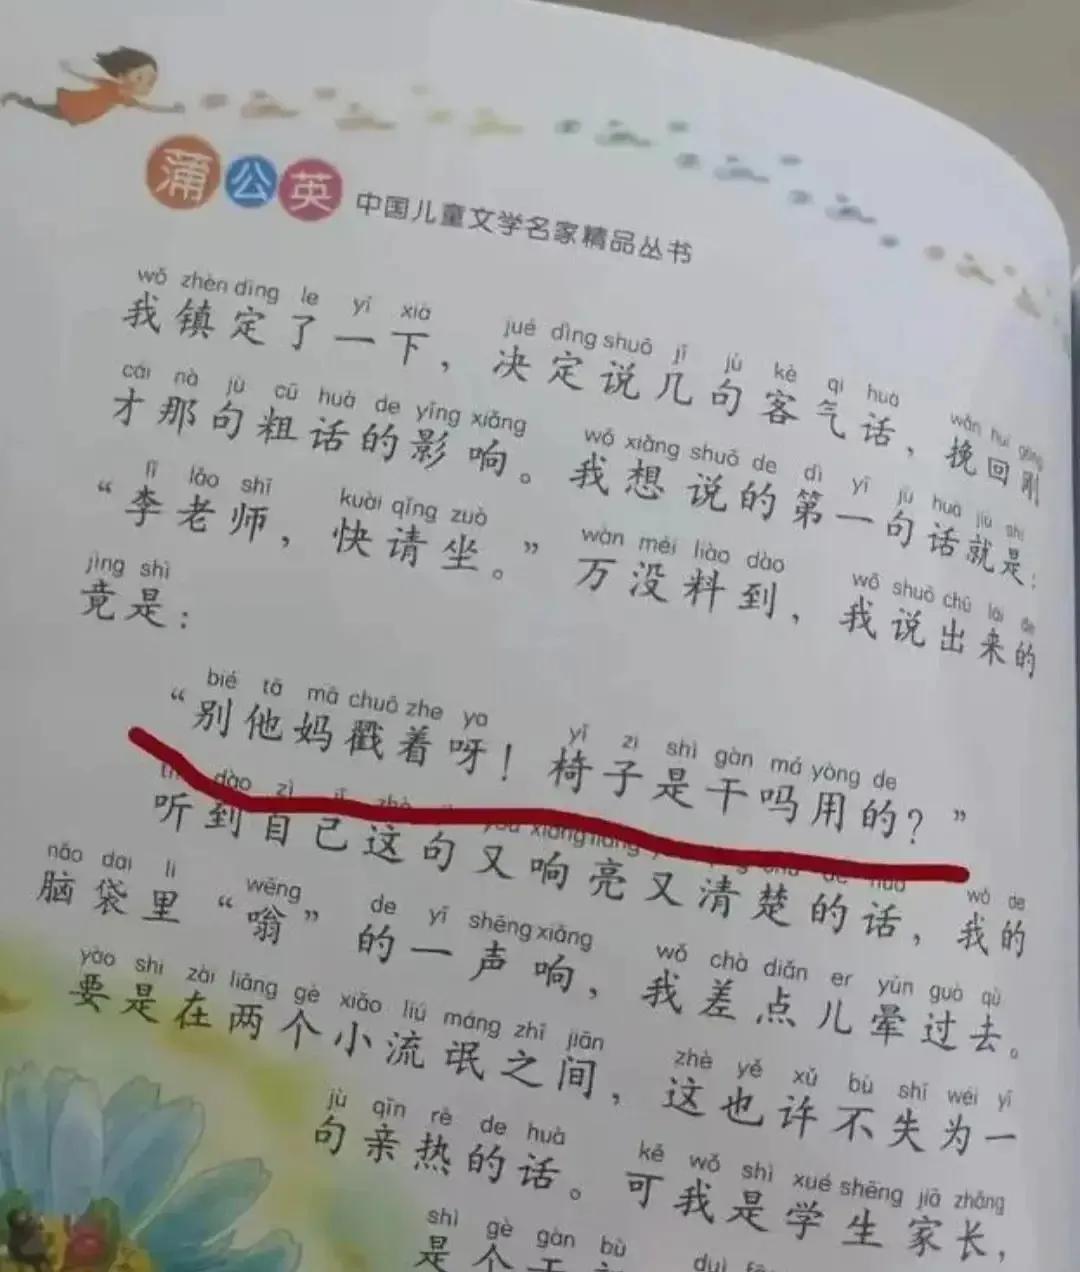 蒲公英 中国儿童文学名家精品丛书
wǒ zhèn dìng le yí xià jué dìng shuō jǐ jù kè qi huà wǎn huí gāng
我镇定了一下，决定说几句客气话，挽回刚
cái nà jù cū huà de yǐng xiǎng wǒ xiǎng shuō de dì yī jù huà jiù shì
才那句粗话的影响。我想说的第一句话就是：
lǐ lǎo shī kuài qǐng zuò wàn méi liào dào wǒ shuō chū lái de
“李老师，快请坐。”万没料到，我说出来的
jìng shì
竟是：
bié tā mā chuō zhe ya yǐ zi shì gàn má yòng de
“别他妈戳着呀！椅子是干吗用的？”
dào zì jǐ zhè yòu xiǎng liàng chu de huà wǒ de
听到自己这句又响亮又清楚的话，我的
nǎo dai li wēng de yì shēng xiǎng wǒ chà diǎn er yūn guò qù
脑袋里“嗡”的一声响，我差点儿晕过去。
yào shi zài liǎng gè xiǎo liú máng zhī jiān zhè yě xǔ bù shī wéi yí
要是在两个小流氓之间，这也许不失为一
jù qīn rè de huà kě wǒ shì xué shēng jiā zhǎng
句亲热的话。可我是学生家长，
shì gè gàn bù
是个干